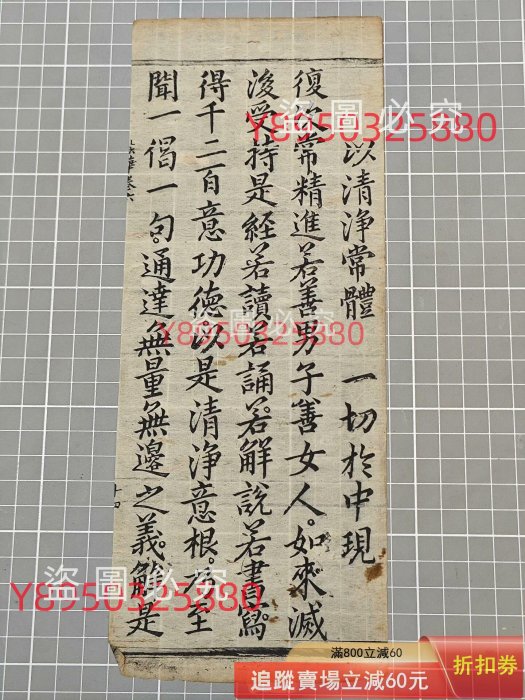 以清淨常體　一切於中現
復次常精進若善男子善女人。如來滅
後受持是經若讀若誦若解說若書寫。
得千二百意功德。以是清淨意根。乃至
聞一偈一句。通達無量無邊之義。解是
法華卷六
十四
盜圖必究
Y8950325880
盜圖必究
Y8950325880
盜圖必究
Y8950325880
滿800立減60
追蹤賣場立減60元
折扣券